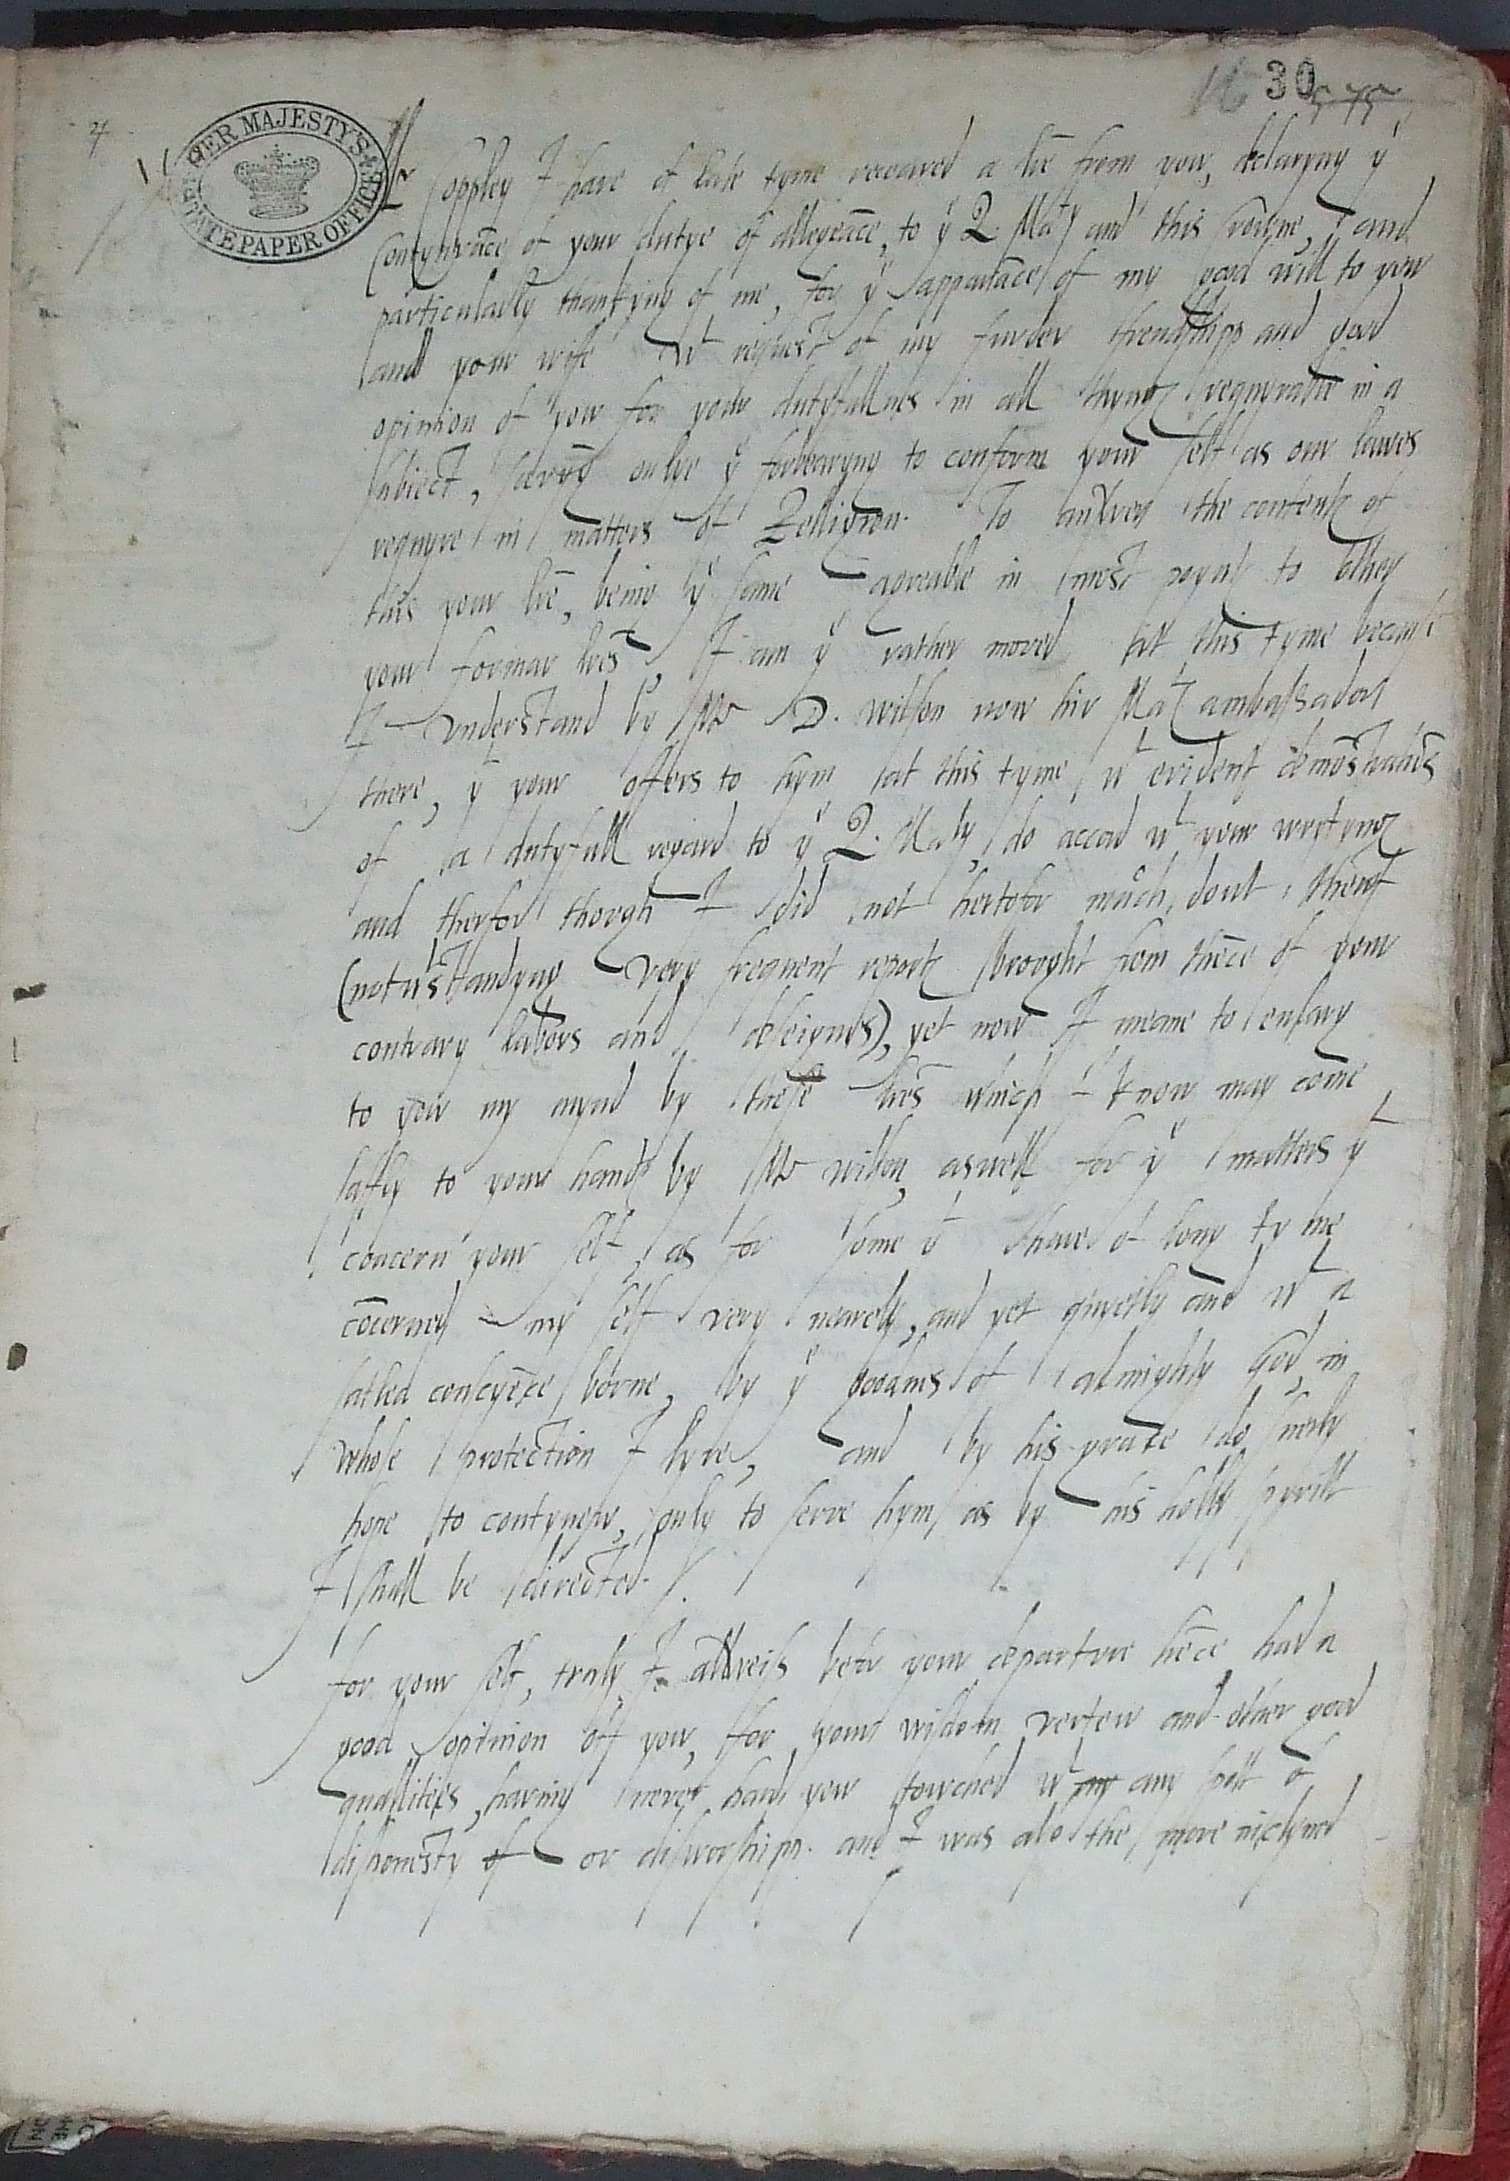 16 30 575
4
HER MAJESTY'S
STATE PAPER OFFICE
Mr Coppley I have of late tyme receaved a lre from yow, declaryng yͤ
contynvāce of your dutye of allegeāce, to yͤ Q. Maty and this crowne, and
particularly thankyng of me, for yͤ appearāce of my good will to yow
and your wife wᵗ request of my furder frendshipp and good
opinion of yow for your dutyfullnes in all thyngs requyrable in a
subiect, savyng onlye yͤ forbearyng to conform your self as our lawes
requyre in matters of Relligion. To answer the contents of
this your lre, being yͤ same agreable in most poynts to other
your formar lres, I am yͤ rather moved at this tyme because
I understand by Mr D. Wilson now hir Matˢ ambassador
there, yᵗ your offers to hym at this tyme wᵗ evident demōstratiōs
of a dutyfull regard to yͤ Q. Maty, do accord wᵗ your wrytyngs
and therfor though I did not hertofor much dout therof
(notwstandyng very frequent reports brought from thēce of your
contrary labors and desseignes), yet now I meane to enlarg
to yow my mynd by these lres which I know may come
safly to your hands by Mr Wilson, aswell for yͤ matters yᵗ
concern your self, as for some yᵗ have of long tyme
cōcerned my self very nearely, and yet quietly and wᵗ a
satled conscyēce borne, by yͤ goodnes of almighty God, in
whose protection I lyve, and by his grace do surely
hope to contynew, only to serve hym, as by his holly spyritt
I shall be directed.
for your self, truly I allweiss befor your departure hēce had a
good opinion off yow, for your wisdom vertew and other good
quallities, having never hard yow towched wᵗ any any spott of
dishonesty of or disworshipp. and I was also the more inclyned